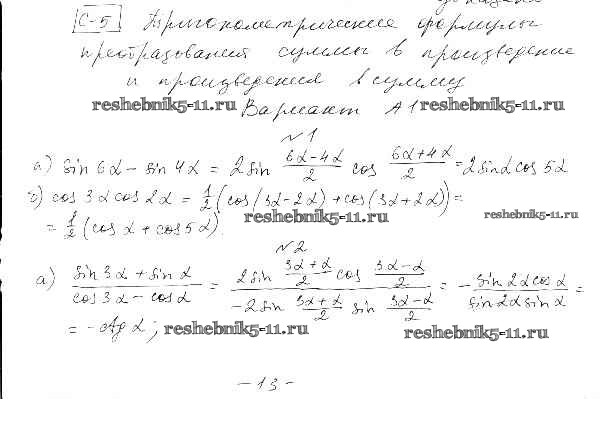 С-5 Тригонометрические формулы
преобразования суммы в произведение
и произведения в сумму
reshebnik5-11.ru Вариант А1 reshebnik5-11.ru
№1
а) sin 6α − sin 4α = 2 sin (6α−4α)/2 cos (6α+4α)/2 = 2 sinα cos 5α
б) cos 3α cos 2α = 1/2 (cos(3α−2α) + cos(3α+2α)) =
reshebnik5-11.ru reshebnik5-11.ru
= 1/2 (cos α + cos 5α)
№2
а) (sin 3α + sin α)/(cos 3α − cos α) = (2 sin (3α+α)/2 cos (3α−α)/2)/(−2 sin (3α+α)/2 sin (3α−α)/2) = − (sin 2α cos α)/(sin 2α sin α) =
= − ctg α; reshebnik5-11.ru reshebnik5-11.ru
− 13 −